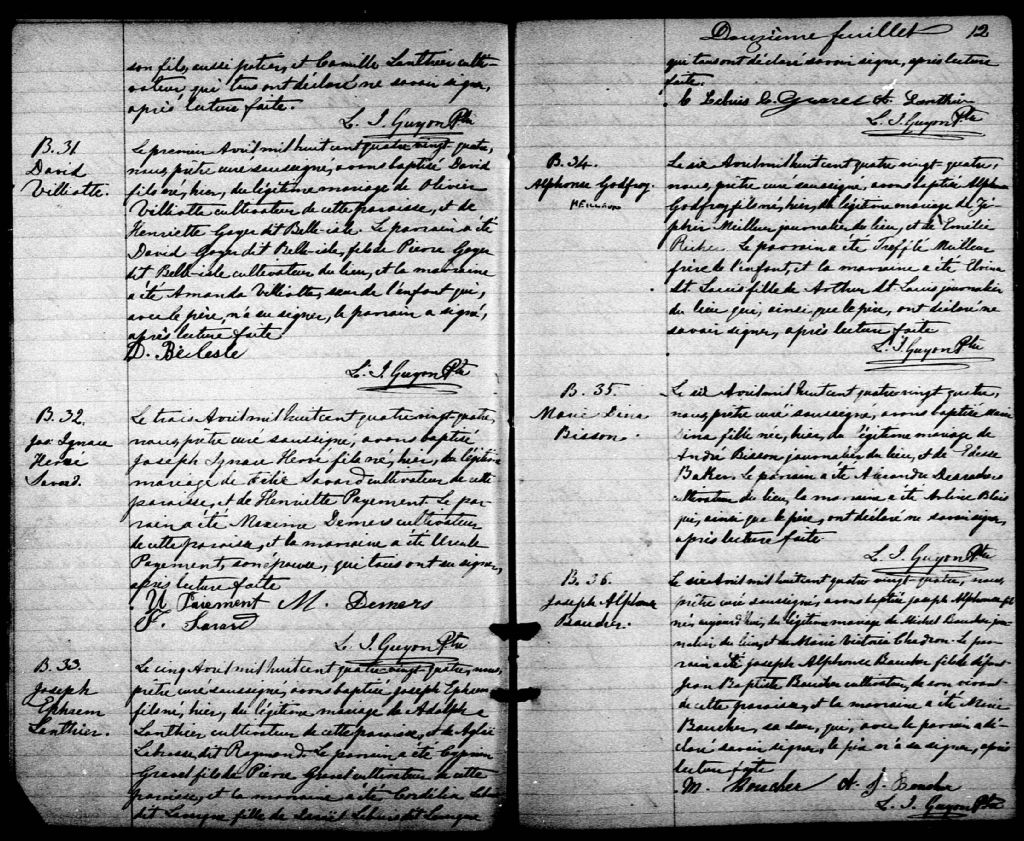 son fils, aussi petier, et Camille Lanthier culti-
vateur qui tous ont déclaré ne savoir signer,
après lecture faite.
L. J. Guyon Ptre
B. 31
David
Villiotte.
Le premier Avril mil huit cent quatre vingt-quatre,
nous, prêtre curé soussigné, avons baptisé David
fils né, hier, du légitime mariage de Olivier
Villiotte cultivateur de cette paroisse, et de
Henriette Goyer dit Belle-isle. Le parrain a été
David Goyer dit Belle-isle, fils de Pierre Goyer
dit Belle-isle cultivateur du lieu, et la marraine
a été Amanda Villiotte, sœur de l'enfant qui,
avec le père, n'a su signer, le parrain a signé,
après lecture faite
D. Bèlesle
L. J. Guyon Ptre
B. 32.
Jos. Ignace
Hervé
Savard.
Le trois Avril mil huit cent quatre vingt quatre,
nous, prêtre curé soussigné, avons baptisé
Joseph Ignace Hervé fils né, hier, du légitime
mariage de Félix Savard cultivateur de cette
paroisse, et de Henriette Payement. Le par-
rain a été Maxime Demers cultivateur
de cette paroisse, et la marraine a été Ursule
Payement, son épouse, qui tous ont su signer,
après lecture faite
U Paiement M. Demers
F. Savard
L. J. Guyon Ptre
B. 33.
Joseph
Ephrem
Lanthier.
Le cinq Avril mil huit cent quatre vingt quatre, nous,
prêtre curé soussigné, avons baptisé Joseph Ephrem
fils né, hier, du légitime mariage de Adolphe
Lanthier cultivateur de cette paroisse, et de Aglaé
Labrosse dit Raymond. Le parrain a été Cyprien
Gravel fils de Pierre Gravel cultivateur de cette
paroisse, et la marraine a été Cordélia
dit Lavigne fille de dit Lavigne
Douzième feuillet 12
qui tous ont déclaré savoir signer, après lecture
faite.
C Lebuis C. Gravel A. Lanthier
L. J. Guyon Ptre
B. 34.
Alphonse Godfroy.
MEILLEUR
Le six Avril mil huit cent quatre vingt-quatre,
nous, prêtre curé soussigné, avons baptisé Alphonse
Godfroy fils né, hier, du légitime mariage de Zé-
phir Meilleur journalier du lieu, et de Émilie
Richer. Le parrain a été Trefflé Meilleur
frère de l'enfant, et la marraine a été Elvina
St Louis fille de Arthur St Louis journalier
du lieu qui, ainsi que le père, ont déclaré ne
savoir signer, après lecture faite
L. J. Guyon Ptre
B. 35.
Marie Dina
Bisson.
Le six Avril mil huit cent quatre vingt quatre,
nous, prêtre curé soussigné, avons baptisé Marie
Dina fille née, hier, du légitime mariage de
André Bisson journalier du lieu, et de Edesse
Baker. Le parrain a été Alexandre cul-
tivateur du lieu, la marraine a été Arline Blais
qui, ainsi que le père, ont déclaré ne savoir signer,
après lecture faite
L. J. Guyon Ptre
B. 36.
Joseph Alphonse
Boucher.
Le six Avril mil huit cent quatre vingt-quatre, nous,
prêtre curé soussigné, avons baptisé Joseph Alphonse fils
né, aujourd'hui, du légitime mariage de Michel Boucher jour-
nalier du lieu, et de Marie Victoria Chadron. Le par-
rain a été Joseph Alphonse Boucher fils de défunt
Jean Baptiste Boucher cultivateur, de son vivant
de cette paroisse, et la marraine a été Marie
Boucher, sa sœur, qui, avec le parrain a dé-
claré savoir signer, le père n'a su signer, après
lecture faite
M. Boucher A. J. Boucher
L. J. Guyon Ptre